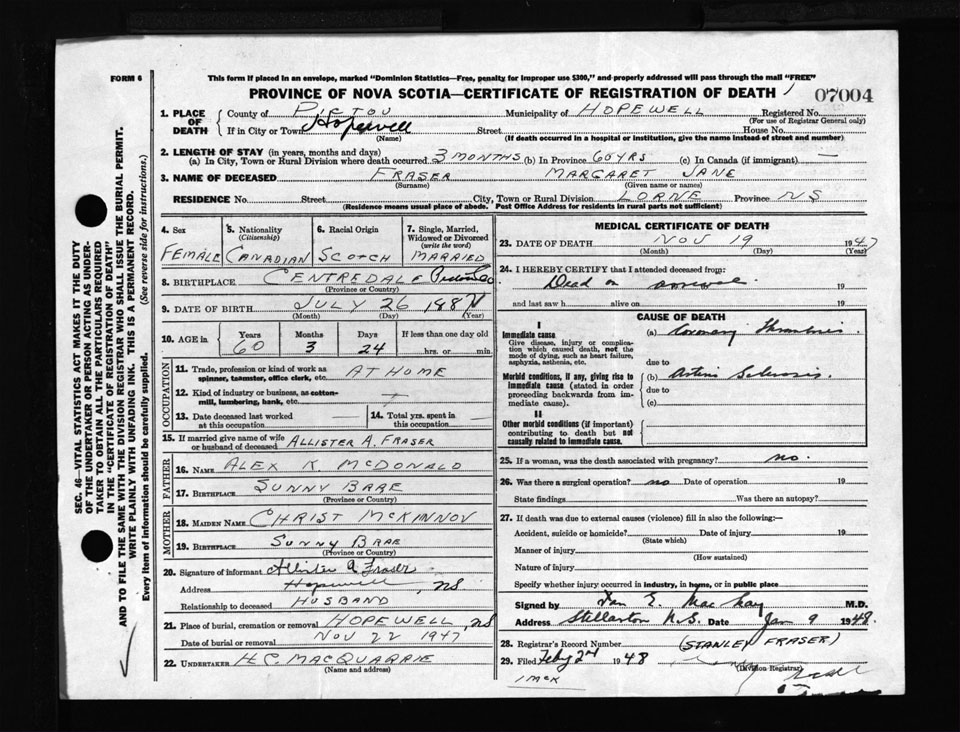 FORM 6
This form if placed in an envelope, marked "Dominion Statistics—Free, penalty for improper use $300," and properly addressed will pass through the mail "FREE"
PROVINCE OF NOVA SCOTIA—CERTIFICATE OF REGISTRATION OF DEATH
07004
1. PLACE OF DEATH County of PICTOU Municipality of HOPEWELL Registered No.
(For use of Registrar General only)
If in City or Town Hopewell Street House No.
(Name) (If death occurred in a hospital or institution, give the name instead of street and number)
2. LENGTH OF STAY (in years, months and days)
(a) In City, Town or Rural Division where death occurred 3 MONTHS (b) In Province 60 YRS (c) In Canada (if immigrant) —
3. NAME OF DECEASED FRASER MARGARET JANE
(Surname) (Given name or names)
RESIDENCE No. Street City, Town or Rural Division LORNE Province NS
(Residence means usual place of abode. Post Office Address for residents in rural parts not sufficient)
4. Sex FEMALE
5. Nationality (Citizenship) CANADIAN
6. Racial Origin SCOTCH
7. Single, Married, Widowed or Divorced (write the word) MARRIED
8. BIRTHPLACE CENTREDALE Pictou Co
(Province or Country)
9. DATE OF BIRTH JULY 26 1887
(Month) (Day) (Year)
10. AGE in Years Months Days If less than one day old
60 3 24 hrs. or min.
OCCUPATION
11. Trade, profession or kind of work as spinner, teamster, office clerk, etc. AT HOME
12. Kind of industry or business, as cotton-mill, lumbering, bank, etc. —
13. Date deceased last worked at this occupation —
14. Total yrs. spent in this occupation —
15. If married give name of wife or husband of deceased ALLISTER A. FRASER
FATHER
16. NAME ALEX K. MCDONALD
17. BIRTHPLACE SUNNY BRAE
(Province or Country)
MOTHER
18. MAIDEN NAME CHRIST MCKINNON
19. BIRTHPLACE SUNNY BRAE
(Province or Country)
20. Signature of informant Allister A Fraser
Address Hopewell, NS
Relationship to deceased HUSBAND
21. Place of burial, cremation or removal HOPEWELL, NS
Date of burial or removal NOV 22 1947
22. UNDERTAKER H.C. MACQUARRIE
(Name and address)
MEDICAL CERTIFICATE OF DEATH
23. DATE OF DEATH NOV 19 1947
(Month) (Day) (Year)
24. I HEREBY CERTIFY that I attended deceased from:
Dead on arrival 19
and last saw h alive on 19
CAUSE OF DEATH
I
Immediate cause (a) Coronary Thrombosis
Give disease, injury or complication which caused death, not the mode of dying, such as heart failure, asphyxia, asthenia, etc.
due to
Morbid conditions, if any, giving rise to immediate cause (stated in order proceeding backwards from immediate cause).
(b) Arterio Sclerosis
due to
(c)
II
Other morbid conditions (if important) contributing to death but not causally related to immediate cause.
25. If a woman, was the death associated with pregnancy? no.
26. Was there a surgical operation? no Date of operation 19
State findings Was there an autopsy?
27. If death was due to external causes (violence) fill in also the following:—
Accident, suicide or homicide? Date of injury 19
(State which)
Manner of injury
(How sustained)
Nature of injury
Specify whether injury occurred in industry, in home, or in public place
Signed by Dan E. MacKay M.D.
Address Stellarton N.S. Date Jan 9 1948.
28. Registrar's Record Number (STANLEY FRASER)
29. Filed Feby 2nd 1948
(Division Registrar)
1 MCK
SEC. 46—VITAL STATISTICS ACT MAKES IT THE DUTY
OF THE UNDERTAKER OR PERSON ACTING AS UNDERTAKER TO OBTAIN ALL THE PARTICULARS REQUIRED
IN THE "CERTIFICATE OF REGISTRATION OF DEATH"
AND TO FILE THE SAME WITH THE DIVISION REGISTRAR WHO SHALL ISSUE THE BURIAL PERMIT.
WRITE PLAINLY WITH UNFADING INK. THIS IS A PERMANENT RECORD.
Every item of information should be carefully supplied. (See reverse side for instructions.)